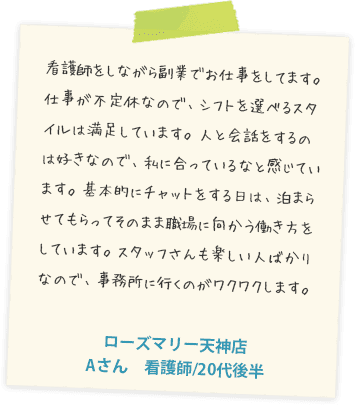 看護師をしながら副業でお仕事をしてます。
仕事が不定休なので、シフトを選べるスタ
イルは満足しています。人と会話をするの
は好きなので、私に合っているなと感じてい
ます。基本的にチャットをする日は、泊まら
せてもらってそのまま職場に向かう働き方を
しています。スタッフさんも楽しい人ばかり
なので、事務所に行くのがワクワクします。
ローズマリー天神店
Aさん　看護師/20代後半